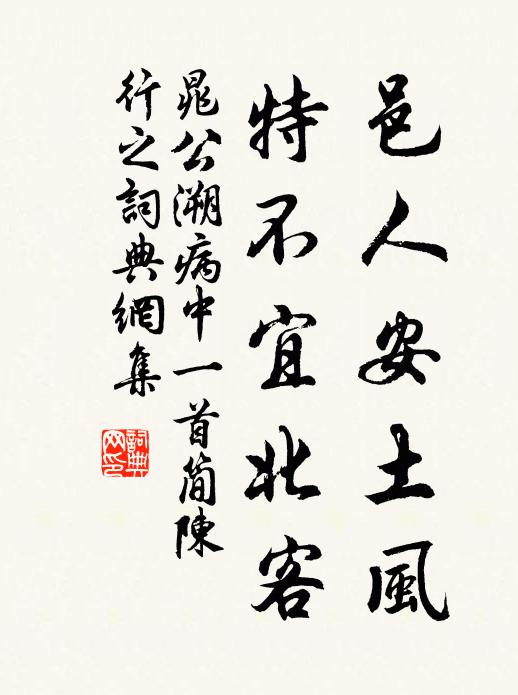 邑人安土風
特不宜北客
晁公溯病中一首简陳
行之詞典網集
詞典
网印